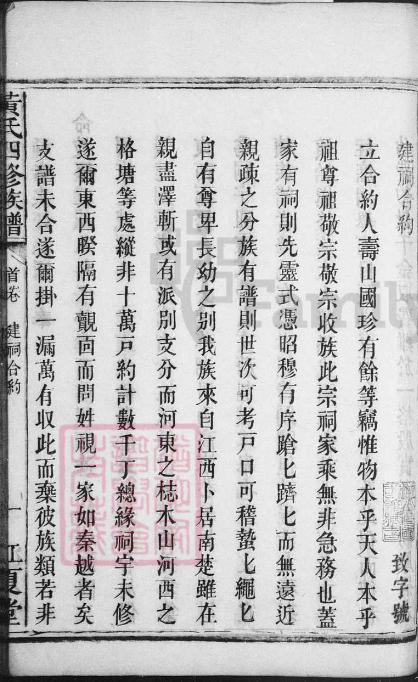 建祠合約
玫字號
立合約人壽山國珍有餘等竊惟物本乎天人本乎
祖尊祖敬宗敬宗收族此宗祠家乘無非急務也蓋
家有祠則先靈式憑昭穆有序蹌匕躋匕而無遠近
親疎之分族有譜則世次可考戸口可稽蟄匕繩匕
自有尊卑長幼之别我族來自江西卜居南楚雖在
親盡澤斬或有派别支分而河東之梽木山河西之
格塘等處縱非十萬戸約計數千丁總緣祠宇未修
遂爾東西暌隔有覿面而問姓視一家如秦越者矣
支譜未合遂爾掛一漏萬有収此而棄彼族類若非
黃氏四修族譜
首卷
建祠合約
一
江夏堂